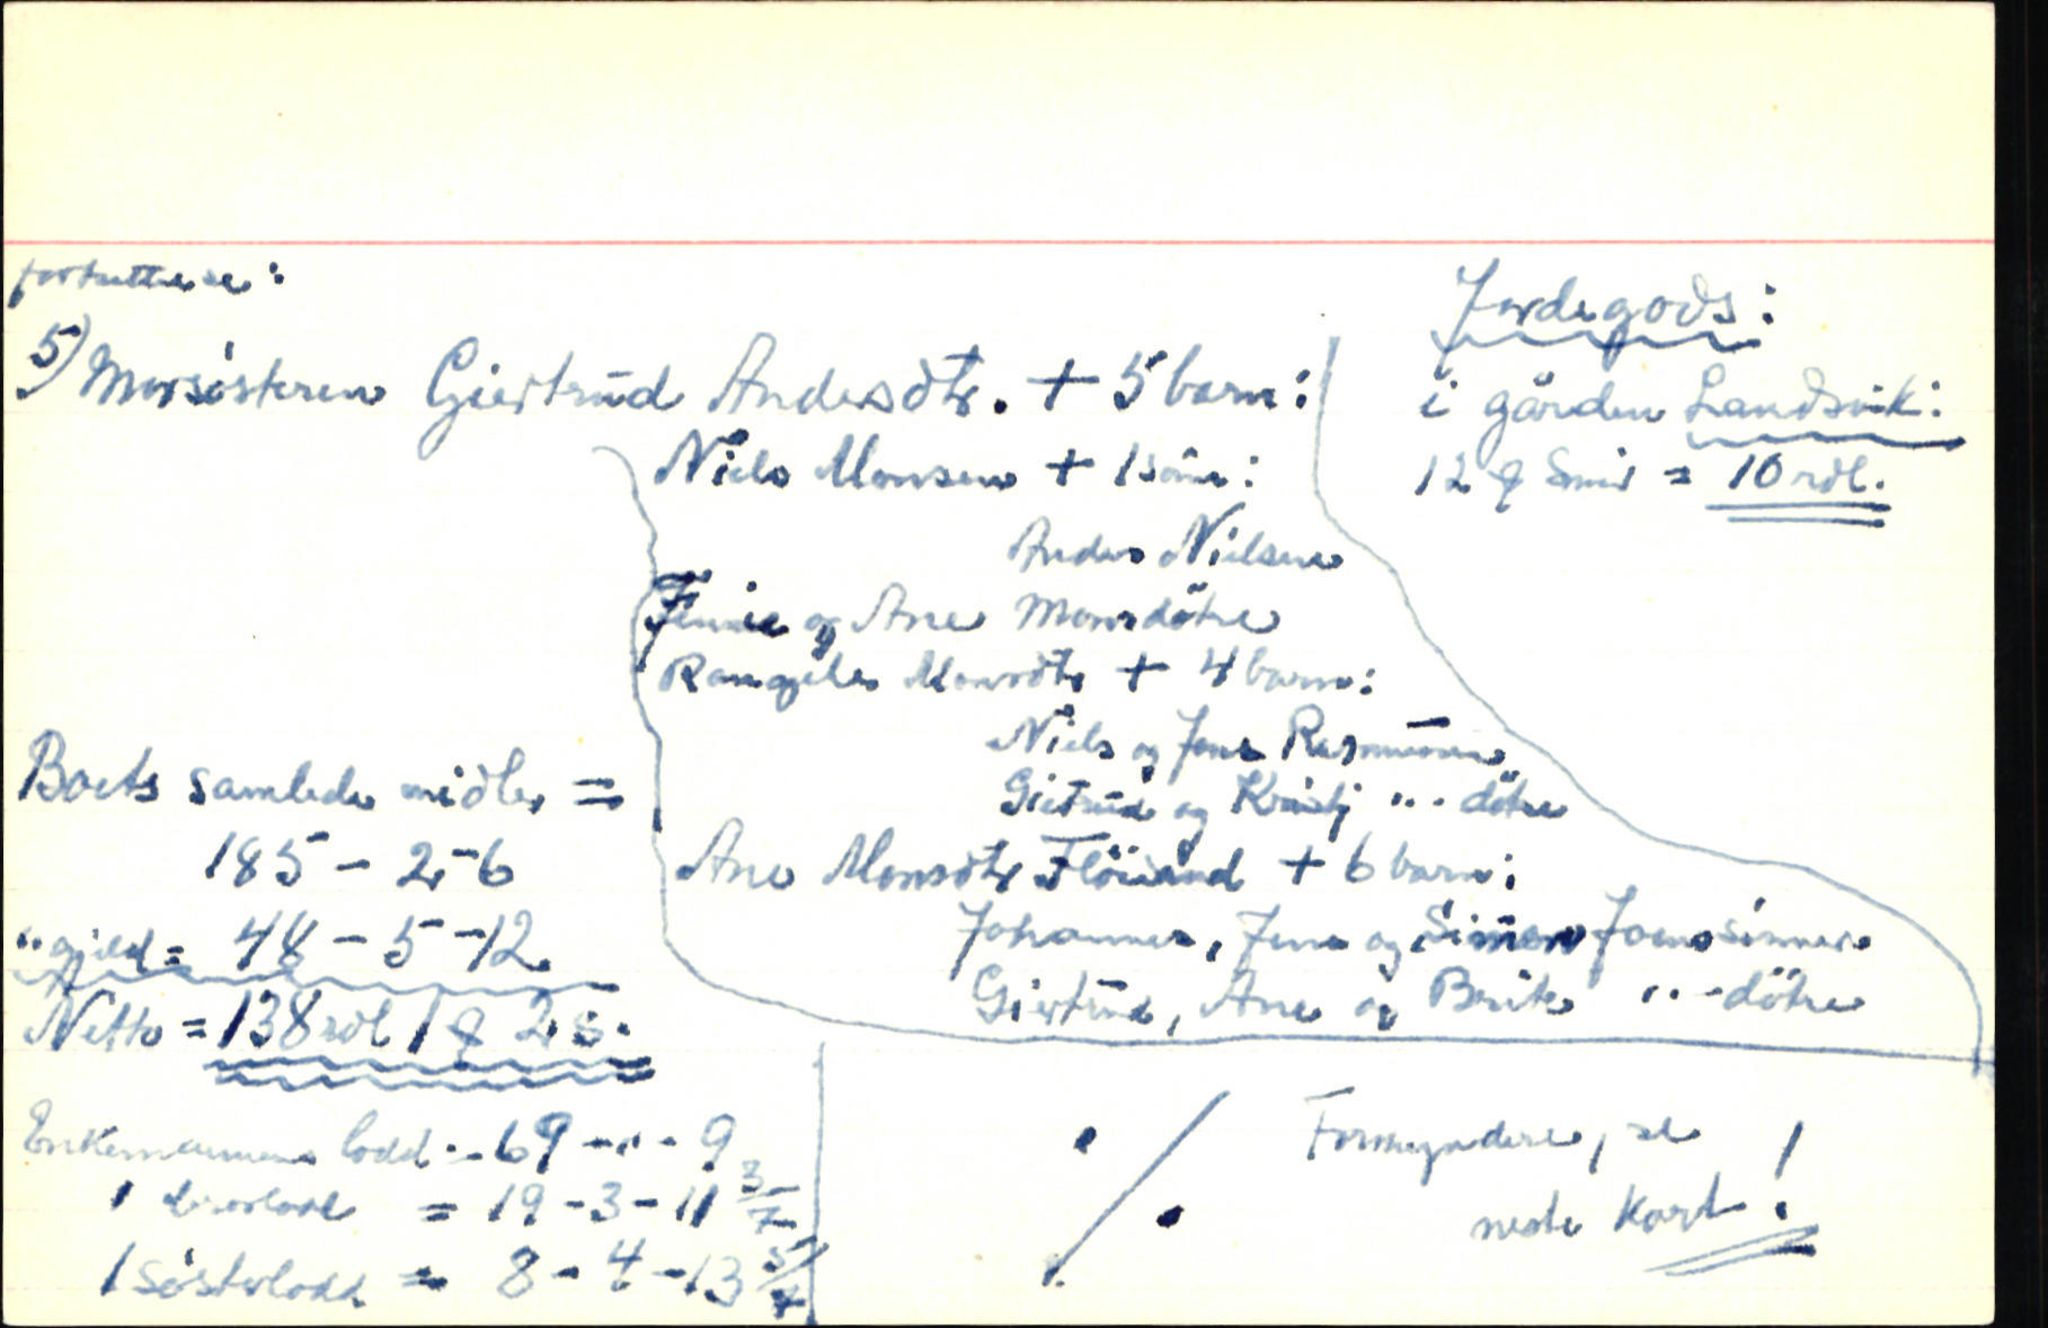 fortsettelse:
5) Morsösteren Giertrud Andersdtr. + 5 barn:
Niels Monsen + 1 sön:
Anders Nielsen
og Ane Monsdötre
Monsdtr + 4 barn:
Niels og Jens Rasmussen
Giertrud og Kristj "-dötre
Ane Monsdtr + 6 barn:
Johannes, Jens og Simon Joenssönner
Giertrud, Ane og Brite "-dötre
Jordegods:
i gården Landsvik:
12 Smör = 10 rdl.
Boets samlede midler =
185 - 2 - 6
" gjeld = 48 - 5 - 12
Netto = 138 rdl 1 2 s.
Enkemannens lodd - 69 - " - 9
1 brorlodd = 19 - 3 - 11 3/7
1 Sösterlodd = 8 - 4 - 13 5/7
./.
Formyndere, se
neste Kort!